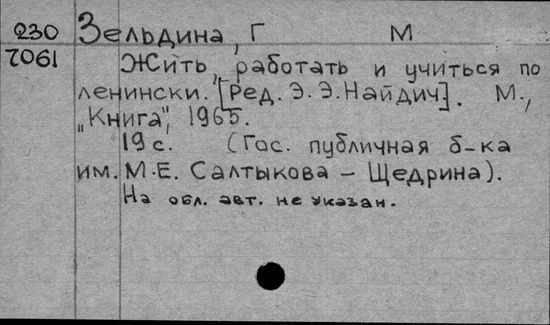 230 Зельдина, Г М
7061 Жить, работать и учиться по
ленински. [Ред. Э. Э. Найдич]. М.,
„Книга", 1965.
19 с. (Гос. публичная б-ка
им. М.Е. Салтыкова – Щедрина).
На обл. авт. не указан.